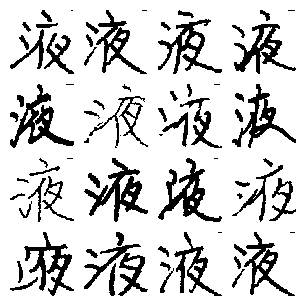 液液液液
液液液液
液液液液
液液液液